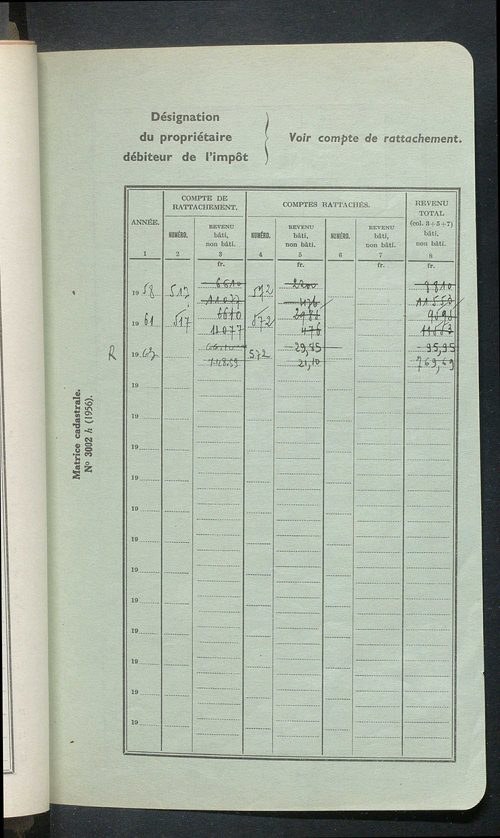 Désignation
du propriétaire
débiteur de l'impôt
Voir compte de rattachement.
COMPTE DE
RATTACHEMENT.
COMPTES RATTACHÉS.
REVENU
TOTAL
(col. 3+5+7)
bâti,
non bâti.
ANNÉE.
NUMÉRO.
REVENU
bâti,
non bâti.
NUMÉRO.
REVENU
bâti,
non bâti.
NUMÉRO.
REVENU
bâti,
non bâti.
1 2 3 4 5 6 7 8
fr. fr. fr. fr.
1958 517 6610 572 2200 8810
11077 476 11553
1961 517 6610 572 2986 9596
11077 476 11553
R 1963 29,85 95,95
572 21,10 769,69
19
19
19
19
19
19
19
19
19
19
19
19
Matrice cadastrale.
N° 3002 h (1956).